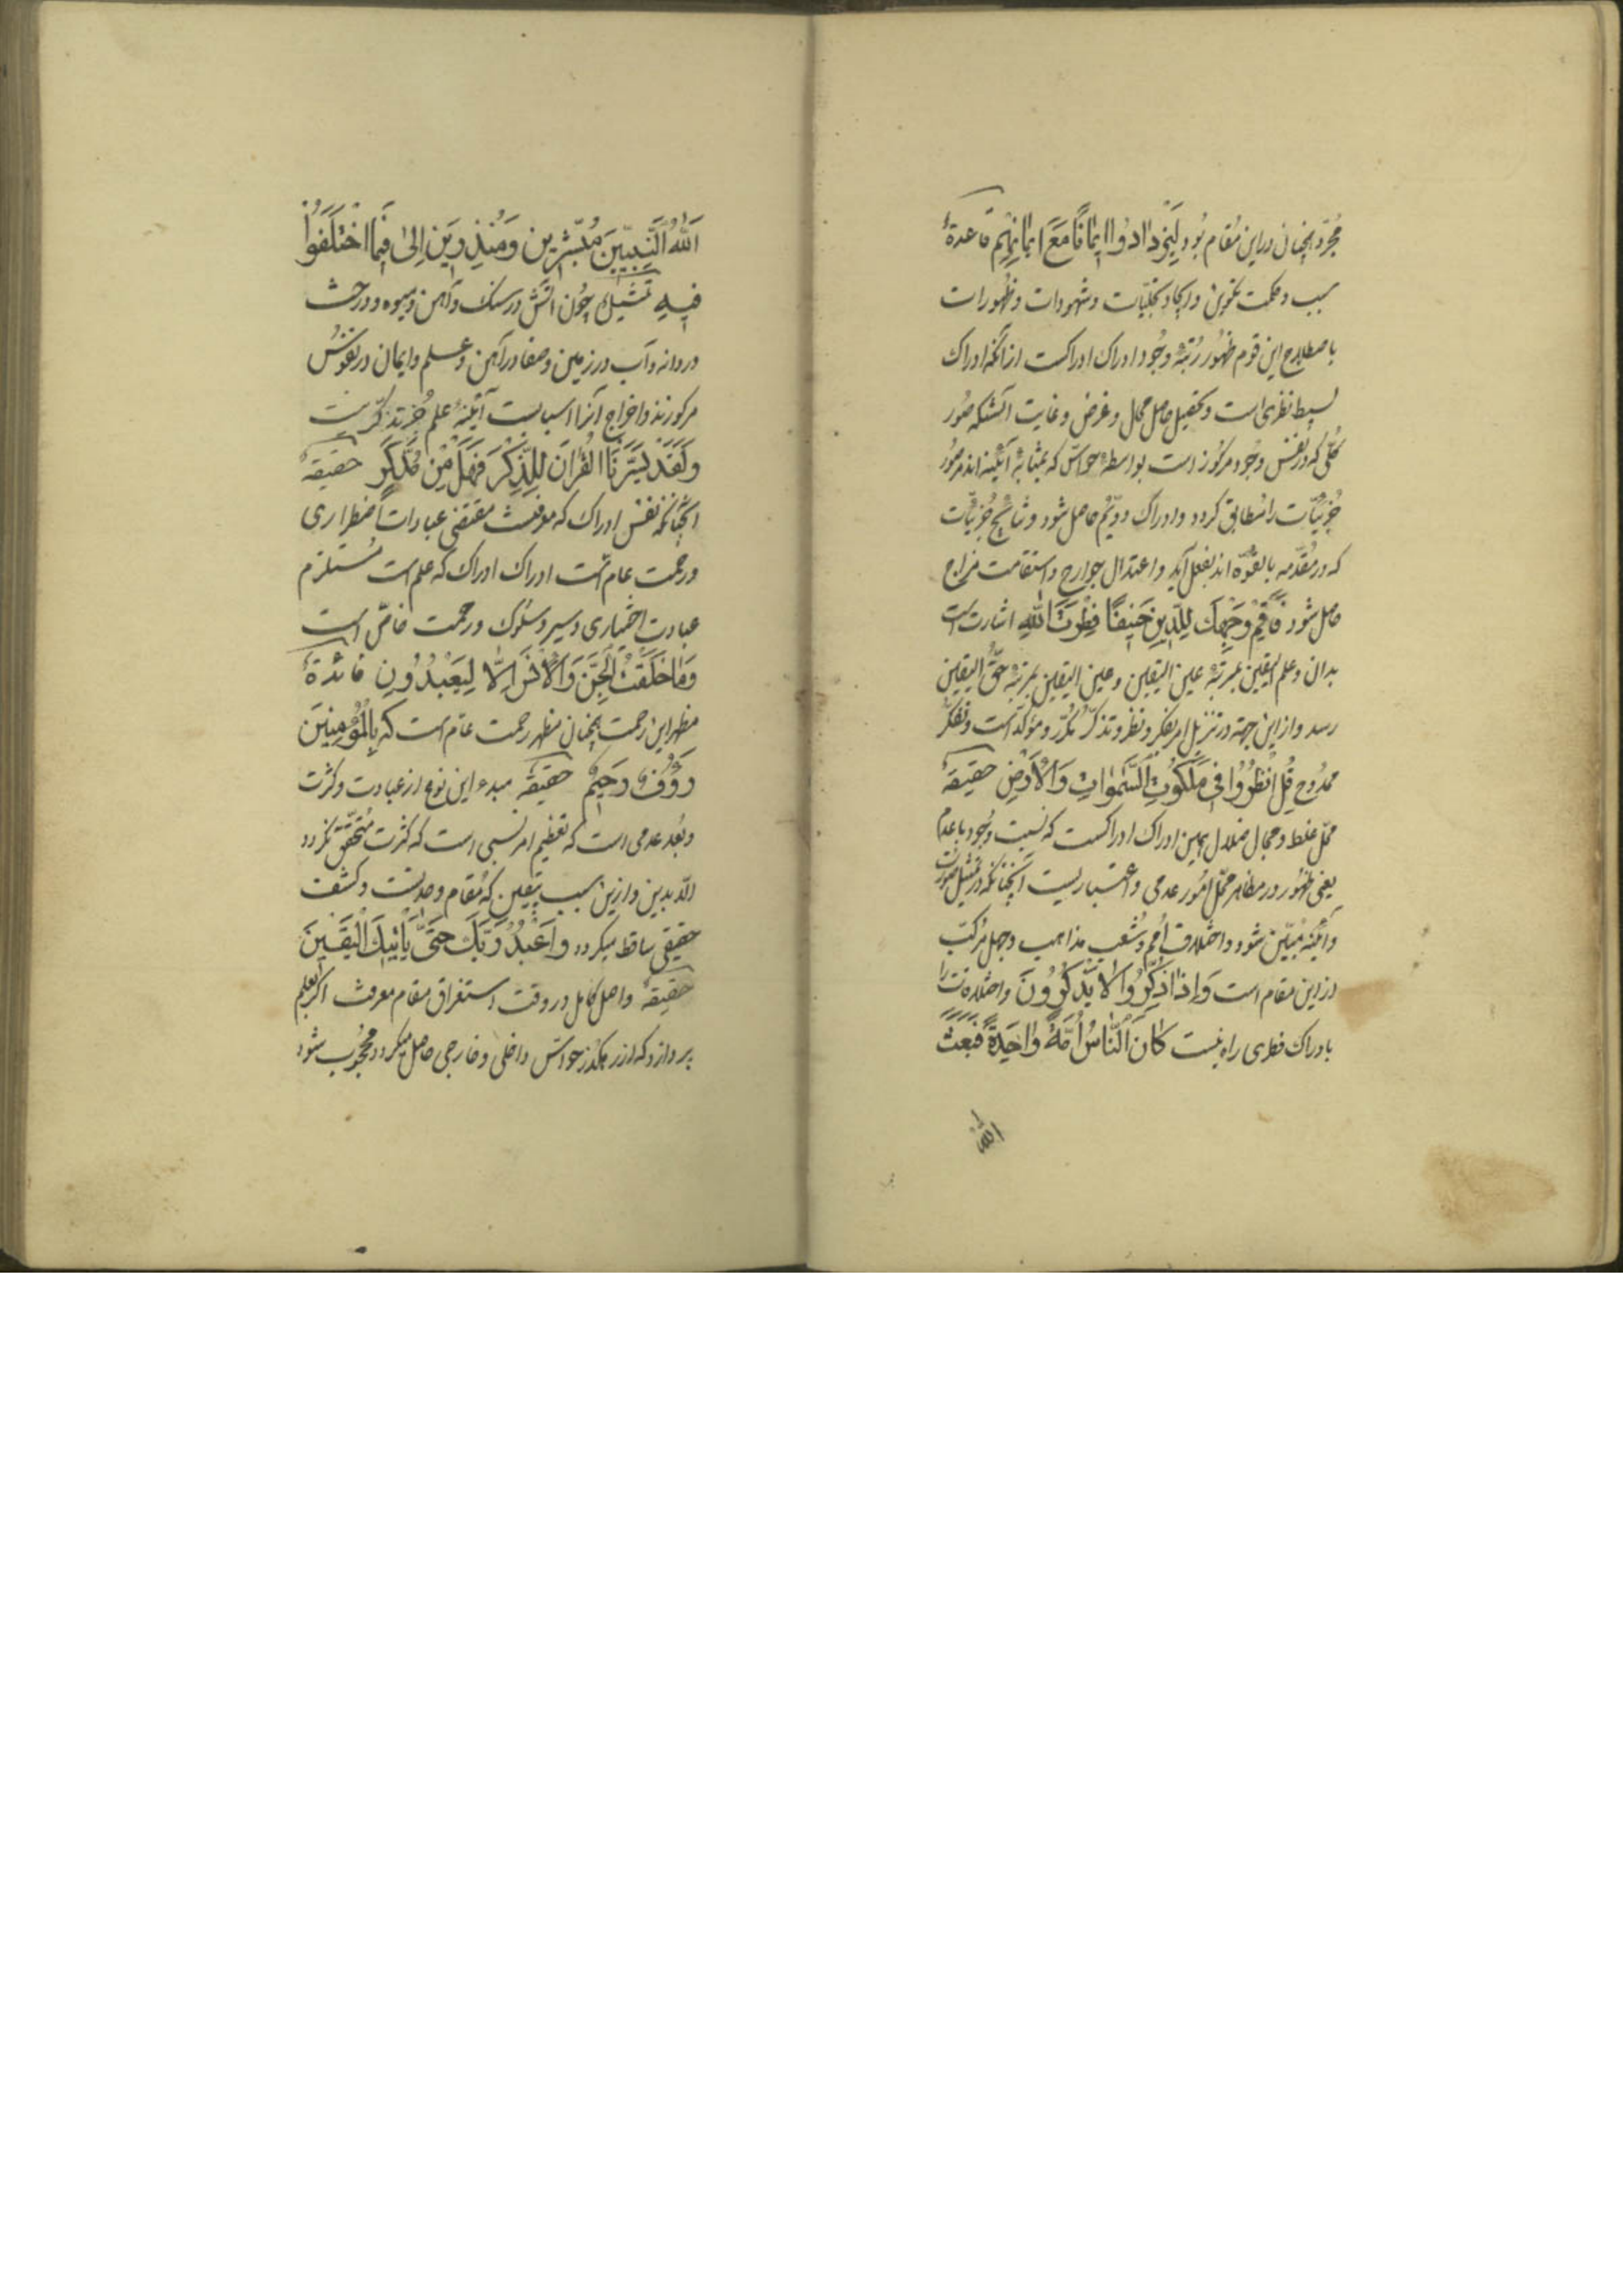 مجرد و همچنان در این مقام بود لِيَزْدَادُوا إِيمَانًا مَعَ إِيمَانِهِمْ قاعدةٌ
سبب و حکمت تکوین و ایجاد و تجلیات و شهودات و ظهورات
باصطلاح این قوم ظهور رتبهٔ وجود ادراک ادراکست از آنکه ادراک
بسیط نظری است و تحصیل حاصل محال و غرض و غایت آنستکه صور
کلّی که در نفس وجود مرکوز است بواسطهٔ حواسّ که بمثابهٔ آئینه اند مر صور
جزئیّات را مطابق کردد و ادراک دویّم حاصل شود و نتایج جزئیّات
که در مقدمه بالقوّه اند بفعل آید و اعتدال جوارح و استقامت مزاج
حاصل شود فَأَقِمْ وَجْهَكَ لِلدِّينِ حَنِيفًا فِطْرَتَ اللهِ اشارتست
بدان و علم الیقین بمرتبهٔ عین الیقین و عین الیقین بمرتبهٔ حقّ الیقین
رسد و از این جهة در تنزیل امر بفکر و نظر و تذکّر مکرّر و مؤکّد است و تفکّر
ممدوح قُلِ انْظُرُوا فِي مَلَكُوتِ السَّمٰوَاتِ وَالْأَرْضِ حقیقةٌ
محلّ غلط و مجال ضلال همین ادراک ادراکست که نسبت وجود با عدم
یعنی ظهور در مظاهر محلّ امور عدمی و اعتباریست آنچنانکه در تمثیل صورت
و آئینه مبیّن شود و اختلاف امم و شعب مذاهب و جهل مرکّب
از این مقام است وَإِذَا ذُكِّرُوا لَا يَذْكُرُونَ و اختلافات را
بادراک فطری راه نیست كَانَ النَّاسُ أُمَّةً وَاحِدَةً فَبَعَثَ
الله
اللهُ النَّبِيِّينَ مُبَشِّرِينَ وَمُنْذِرِينَ إِلىٰ فِيمَا اخْتَلَفُوا
فِيهِ تمثیلٌ چون آتش در سنک و آهن و میوه و درخت
در دانه و آب در زمین و صفا در آهن و علم و ایمان در نفوس
مرکوزند و اخراج آنرا اسبابست آئینهٔ علم جز تذکّر نیست
وَلَقَدْ يَسَّرْنَا الْقُرْآنَ لِلذِّكْرِ فَهَلْ مِنْ مُدَّكِرٍ حقیقةٌ
آنچنانکه نفس ادراک که معرفت مقتضی عبادات اضطراری
و رحمت عام است ادراک ادراک که علم است مستلزم
عبادت اختیاری و سیر و سلوک و رحمت خاصّ است
وَمَا خَلَقْتُ الْجِنَّ وَالْإِنْسَ إِلَّا لِيَعْبُدُونِ فائدةٌ
مظهر این رحمت همچنان مظهر رحمت عامّ است که بِالْمُؤْمِنِينَ
رَؤُفٌ رَحِيمٌ حقیقةٌ مبدء این نوع از عبادت و کثرت
و بعد عدمی است که تعظیم امر نسبی است که کثرت متحقّق نکردد
الّا بدین و ازین سبب بیقین که مقام وحدتست و کشف
حقیقی ساقط میکردد وَاعْبُدْ رَبَّكَ حَتّىٰ يَأْتِيَكَ الْيَقِينُ
حقیقةٌ واصل کامل در وقت استغراق مقام معرفت اکر بعلم
پردازد که از رهکذر حواسّ داخلی و خارجی حاصل میکردد محجوب شود